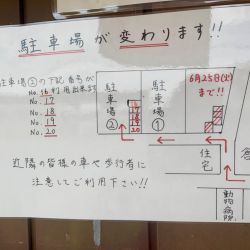 駐車場が変わります!!
駐車場②の下記番号が
No. 16 利用出来ます
No. 17
No. 18
No. 19
No. 20
駐車場②
17
18
19
20
駐車場①
6月25日(火)
まで!!
住宅
動物病院
近隣の皆様の車や歩行者に
注意してご利用下さい!!